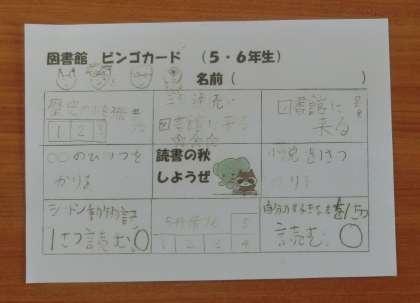 図書館 ビンゴカード (5・6年生)
名前 ( )
歴史の
1 2 3
図書館に来る
図書館に
来る
○○のひみつを
かりる
読書の秋
しようぜ
小説を1さつ
かりる
シートン動物記
1さつ読む
5
1 2 3 4
自分のすきな本を1さつ
読む